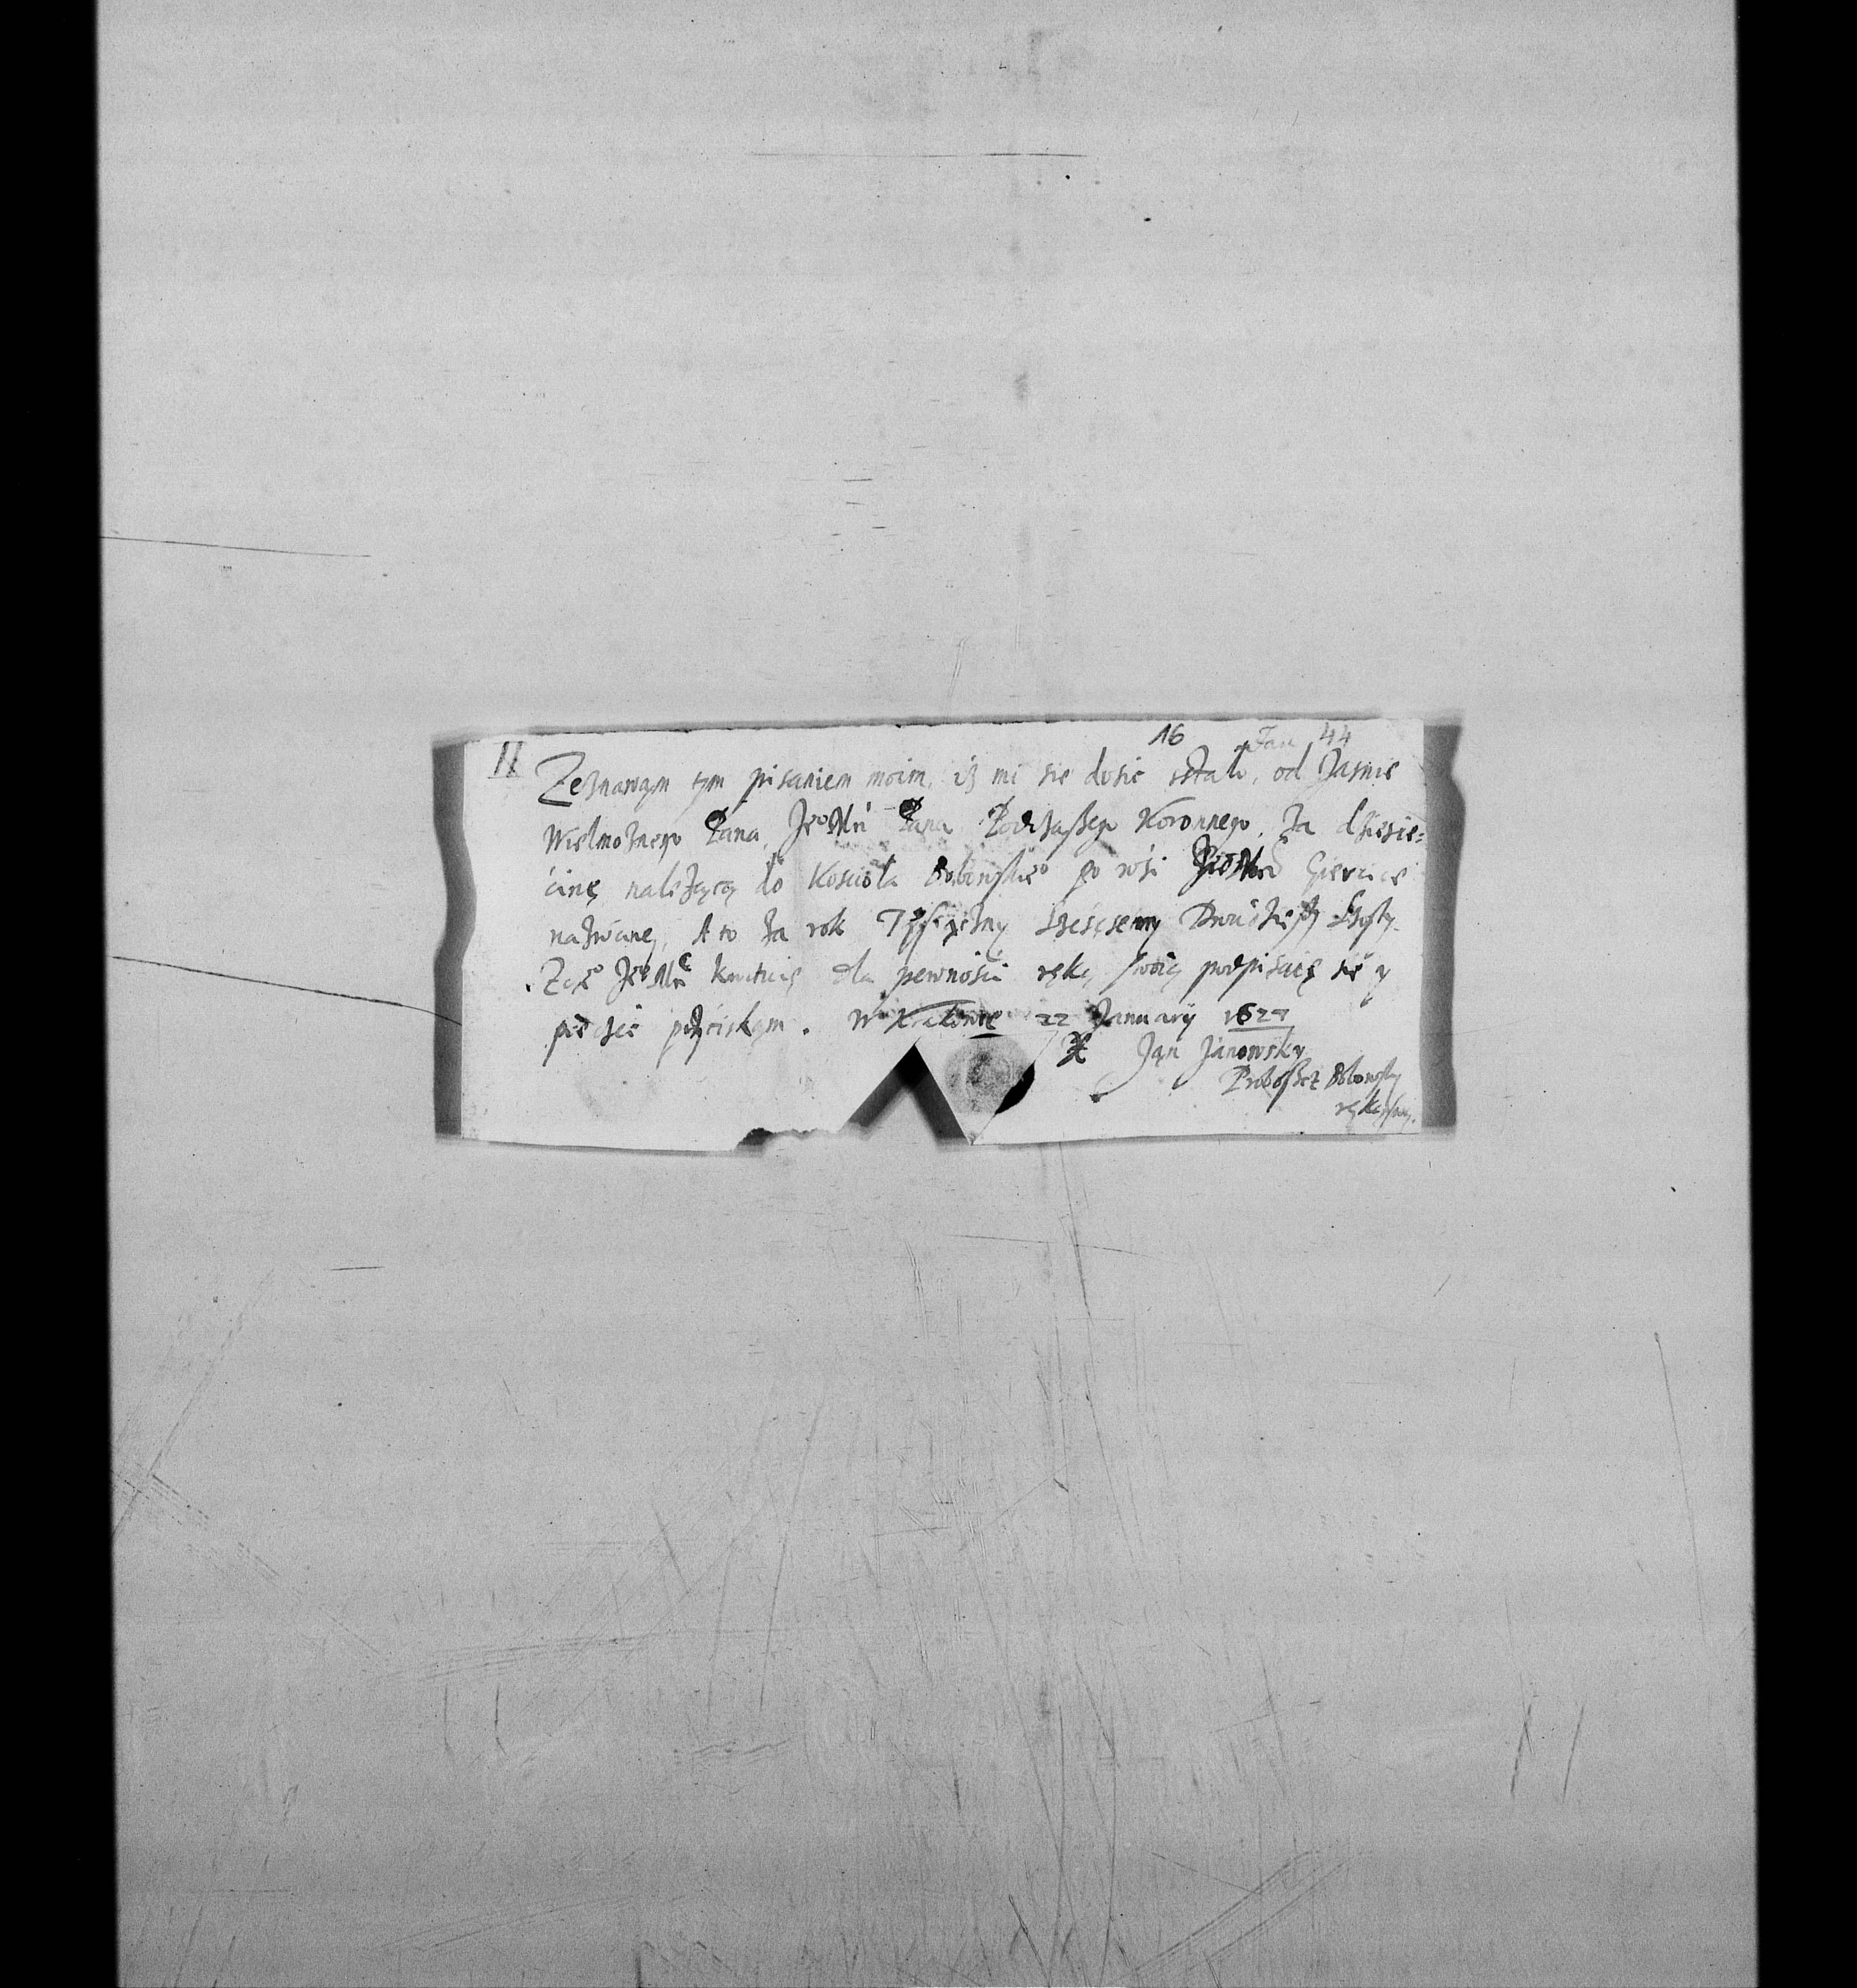 16 Jan 44
II
Zeznawam tym pisaniem moim, iż mi sie dosić sstało, od Jasnie
Wielmożnego Pana, Je⁰ Mći Pana Podczaszego Koronnego, za dziesię=
cinę należącą do Kosciola Bobowskie⁰ po wsi
nazwaney, A to za rok Tysiączny Szescsetny Dwudziesty Szosty.
Zcze⁰ Je⁰ Mć kwituię dla pewnosci ręką swoią podpisuię się y
pieczęć przyciskam. W Krakowie 22 January 1627
X Jan Janowsky
Proboszcz Bobowsky
ręką swą.